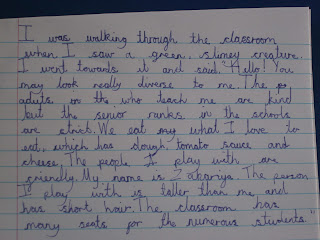 I was walking through the classroom
when I saw a green, slimey creature.
I went towards it and said, "Hello! You
may look really diverse to me. The
aduts, or the who teach me are kind
but the senior ranks in the schools
are strict. We eat what I love to
eat, which has dough, tomato sauce and
cheese. The people I play with are
friendly. My name is Zakariya. The person
I play with is taller than me and
has short hair. The classroom has
many seats for the numerous students."